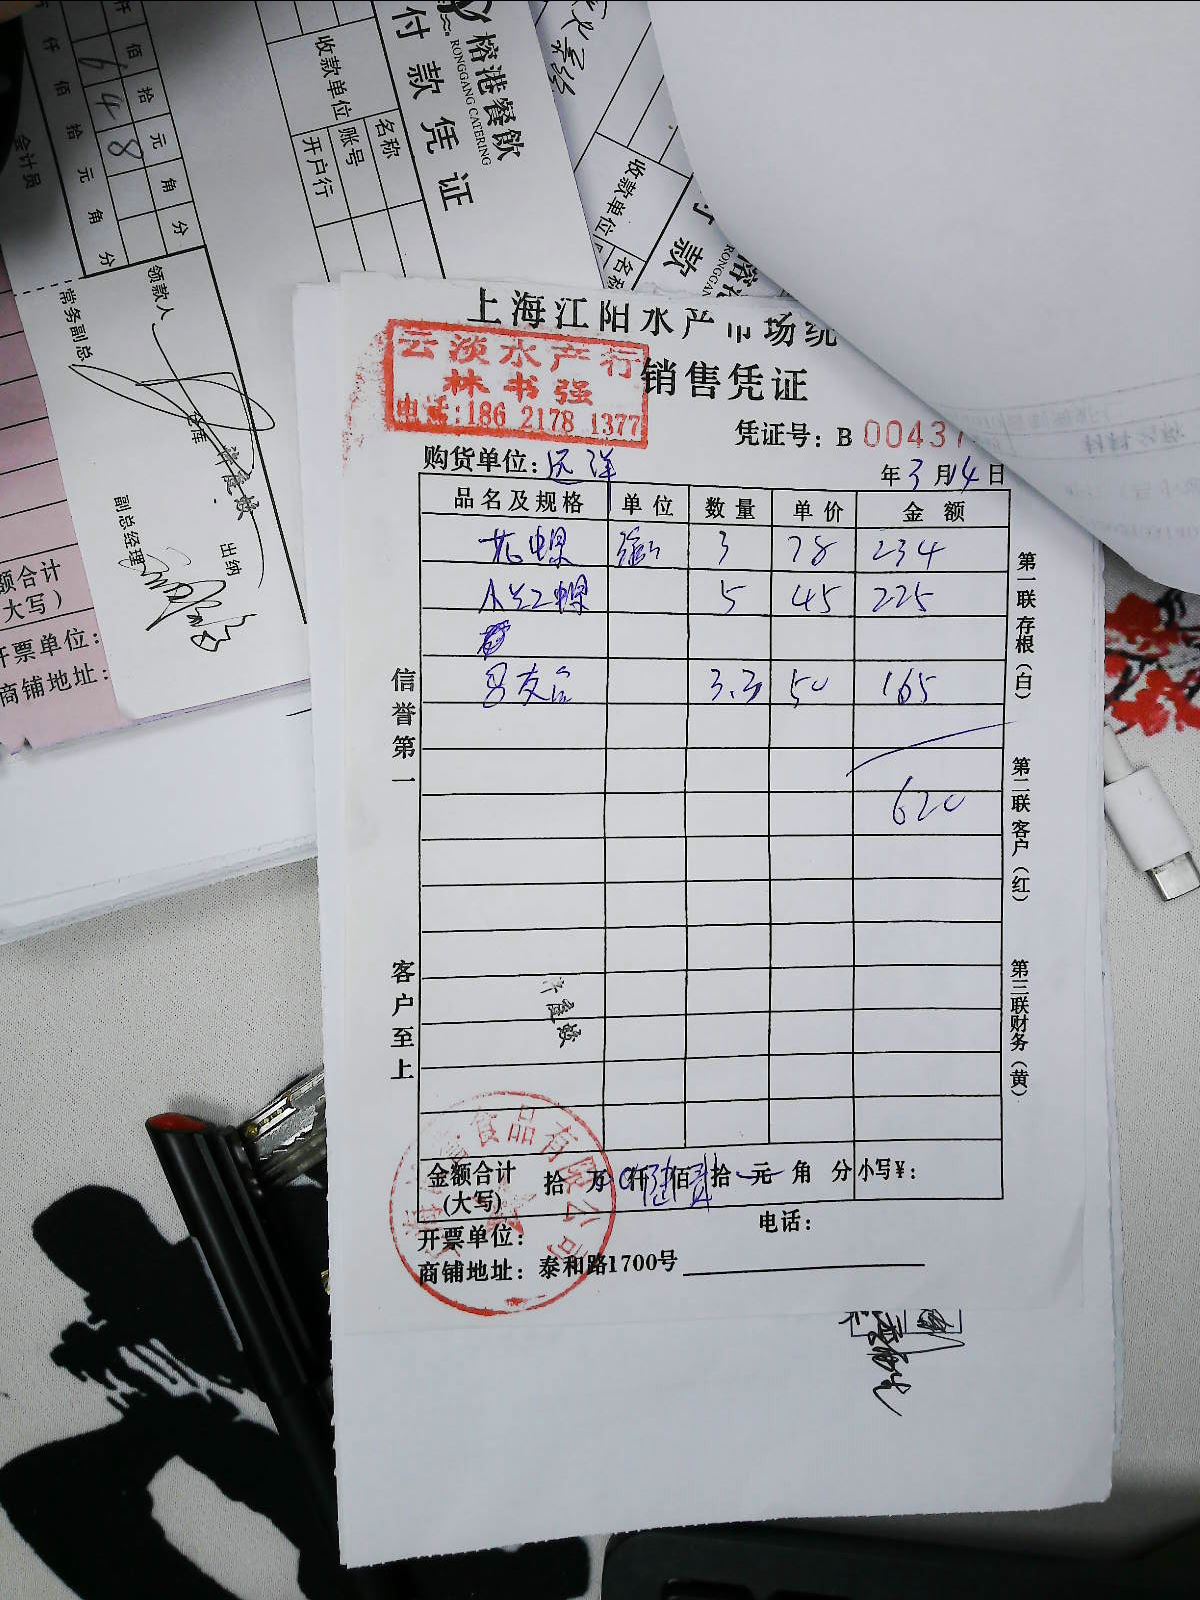 榕港餐飲
RONGGANG CATERING
付款凭证
收款单位
名称
账号
开户行
仟佰拾元角分
648
万仟佰拾元角分
会计员
领款人
常务副总
仓库
出纳
副总经理
额合计
大写）
开票单位：
商铺地址：
收款单位
付款
上海江阳水产市场统
云淡水产行
林书强
电话:186 2178 1377
销售凭证
凭证号：B 00437
购货单位：远洋
年3月14日
品名及规格 单位 数量 单价 金额
花螺 3 78 234
小红螺 5 45 225
3.3 50 165
620
信誉第一
客户至上
第一联存根（白）
第二联客户（红）
第三联财务（黄）
食品有限公司
金额合计（大写） 拾 万 仟陆佰贰拾元 角 分 小写¥：
开票单位： 电话：
商铺地址：泰和路1700号